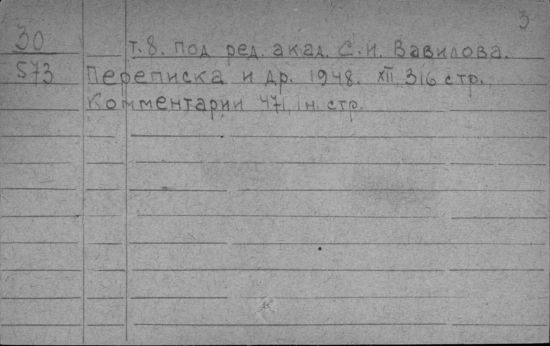 3
30 т. 8. Под ред. акад. С. И. Вавилова.
573 Переписка и др. 1948. XII, 316 стр.
Комментарии 47, 1 н. стр.